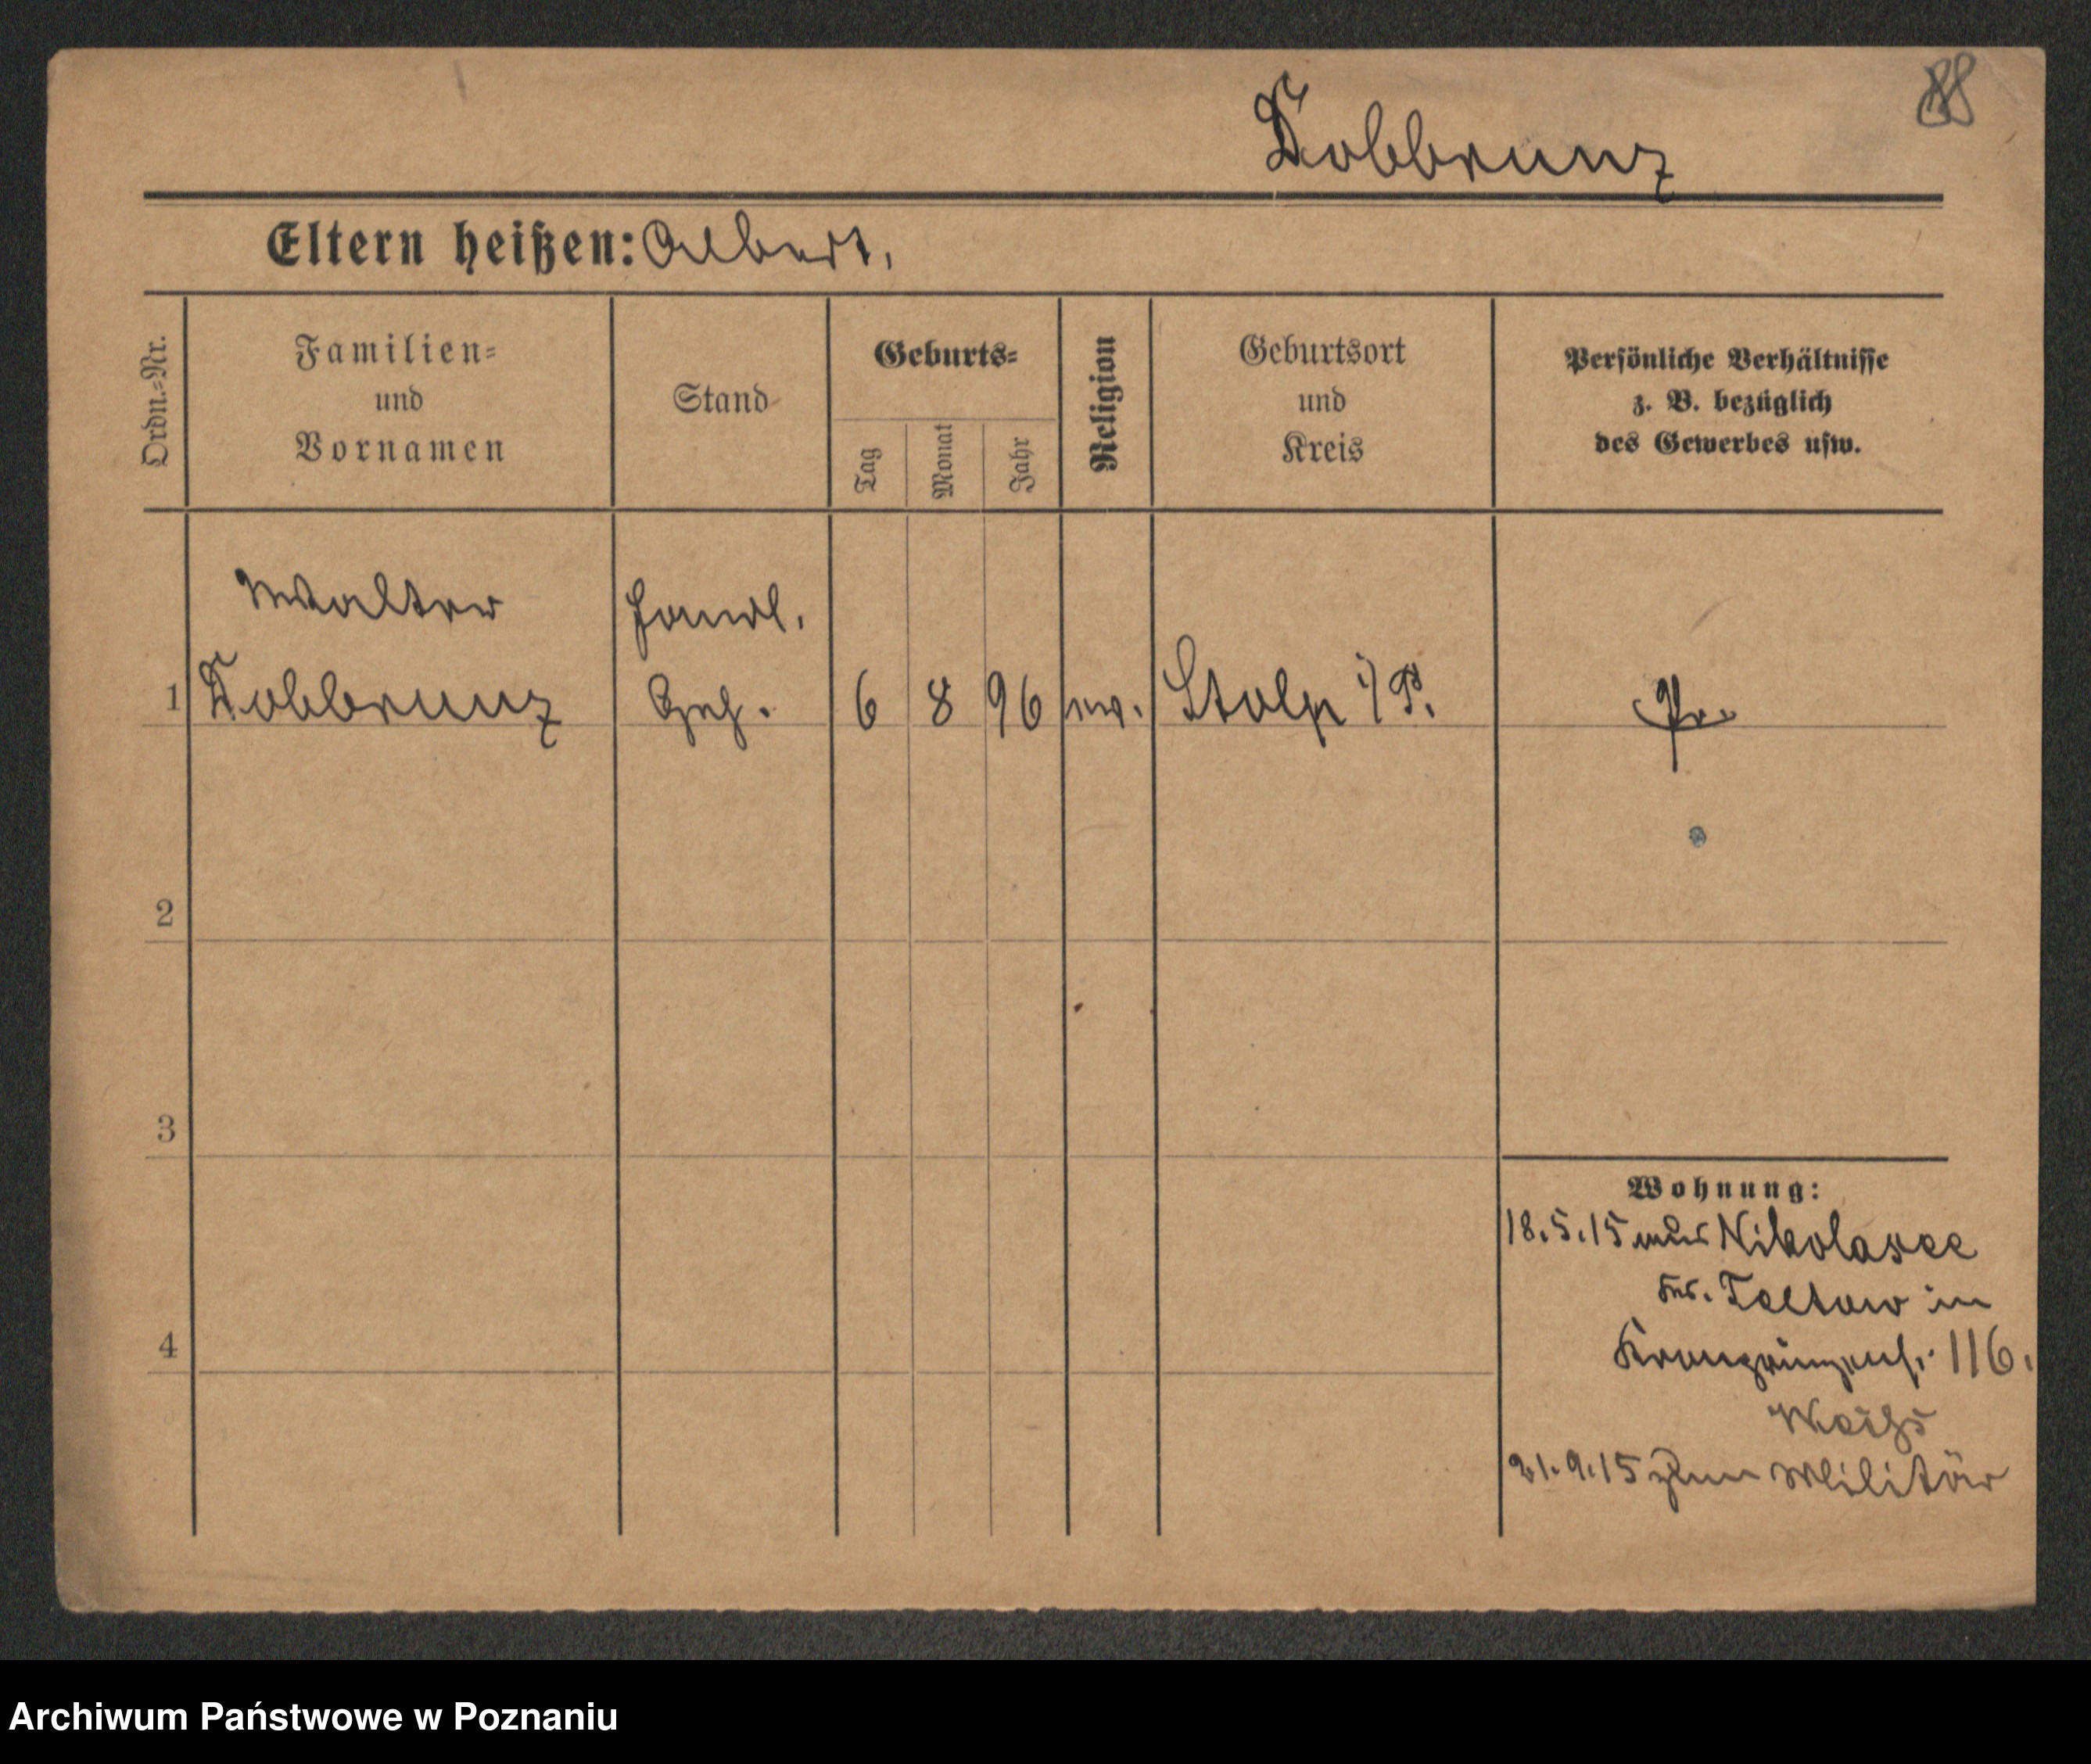 88
Dobbrunz
Eltern heißen: Albert.
Ordn.-Nr.
Familien-
und
Vornamen
Stand
Geburts-
Tag
Monat
Jahr
Religion
Geburtsort
und
Kreis
Persönliche Verhältnisse
z. B. bezüglich
des Gewerbes usw.
Walter
Handl.
1 Dobbrunz Geh. 6 8 96 ev. Stolp i/P. Pr.
2
3
4
Wohnung:
18.5.15 aus Nikolasee
Kr. Teltow in
116.
21.9.15 zum Militär
Archiwum Państwowe w Poznaniu